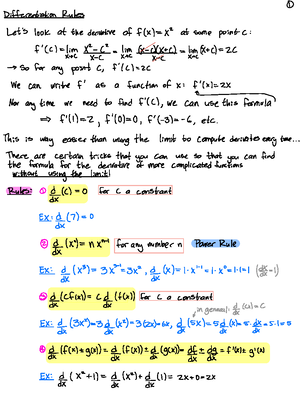 ①
Differentiation Rules
Let's look at the derivative of f(x)=x² at some point c:
f'(c)=lim x→c (x²-c²)/(x-c) = lim x→c (x-c)(x+c)/(x-c) = lim x→c (x+c)=2c
→ So for any point c, f'(c)=2c
We can write f' as a function of x: f'(x)=2x
Now any time we need to find f'(c), we can use this formula
⇒ f'(1)=2, f'(0)=0, f'(-3)=-6, etc.
This is way easier than using the limit to compute derivatives every time...
There are certain tricks that you can use so that you can find
the formula for the derivative of more complicated functions
without using the limit!
Rules: ① d/dx (c) = 0 for c a constant
Ex: d/dx (7) = 0
② d/dx (xⁿ) = n xⁿ⁻¹ for any number n Power Rule
Ex: d/dx (x³) = 3x³⁻¹=3x², d/dx (x) = 1·x¹⁻¹=1·x⁰=1·1=1 (dx/dx=1)
③ d/dx (cf(x)) = c d/dx (f(x)) for c a constant
in general, d/dx (cx) = c
Ex: d/dx (3x²)=3 d/dx (x²)=3(2x)=6x, d/dx (5x)=5 d/dx (x)=5·dx/dx=5·1=5
④ d/dx (f(x)±g(x)) = d/dx (f(x)) ± d/dx (g(x)) = df/dx ± dg/dx = f'(x) ± g'(x)
Ex: d/dx (x²+1) = d/dx (x²) + d/dx (1) = 2x+0=2x